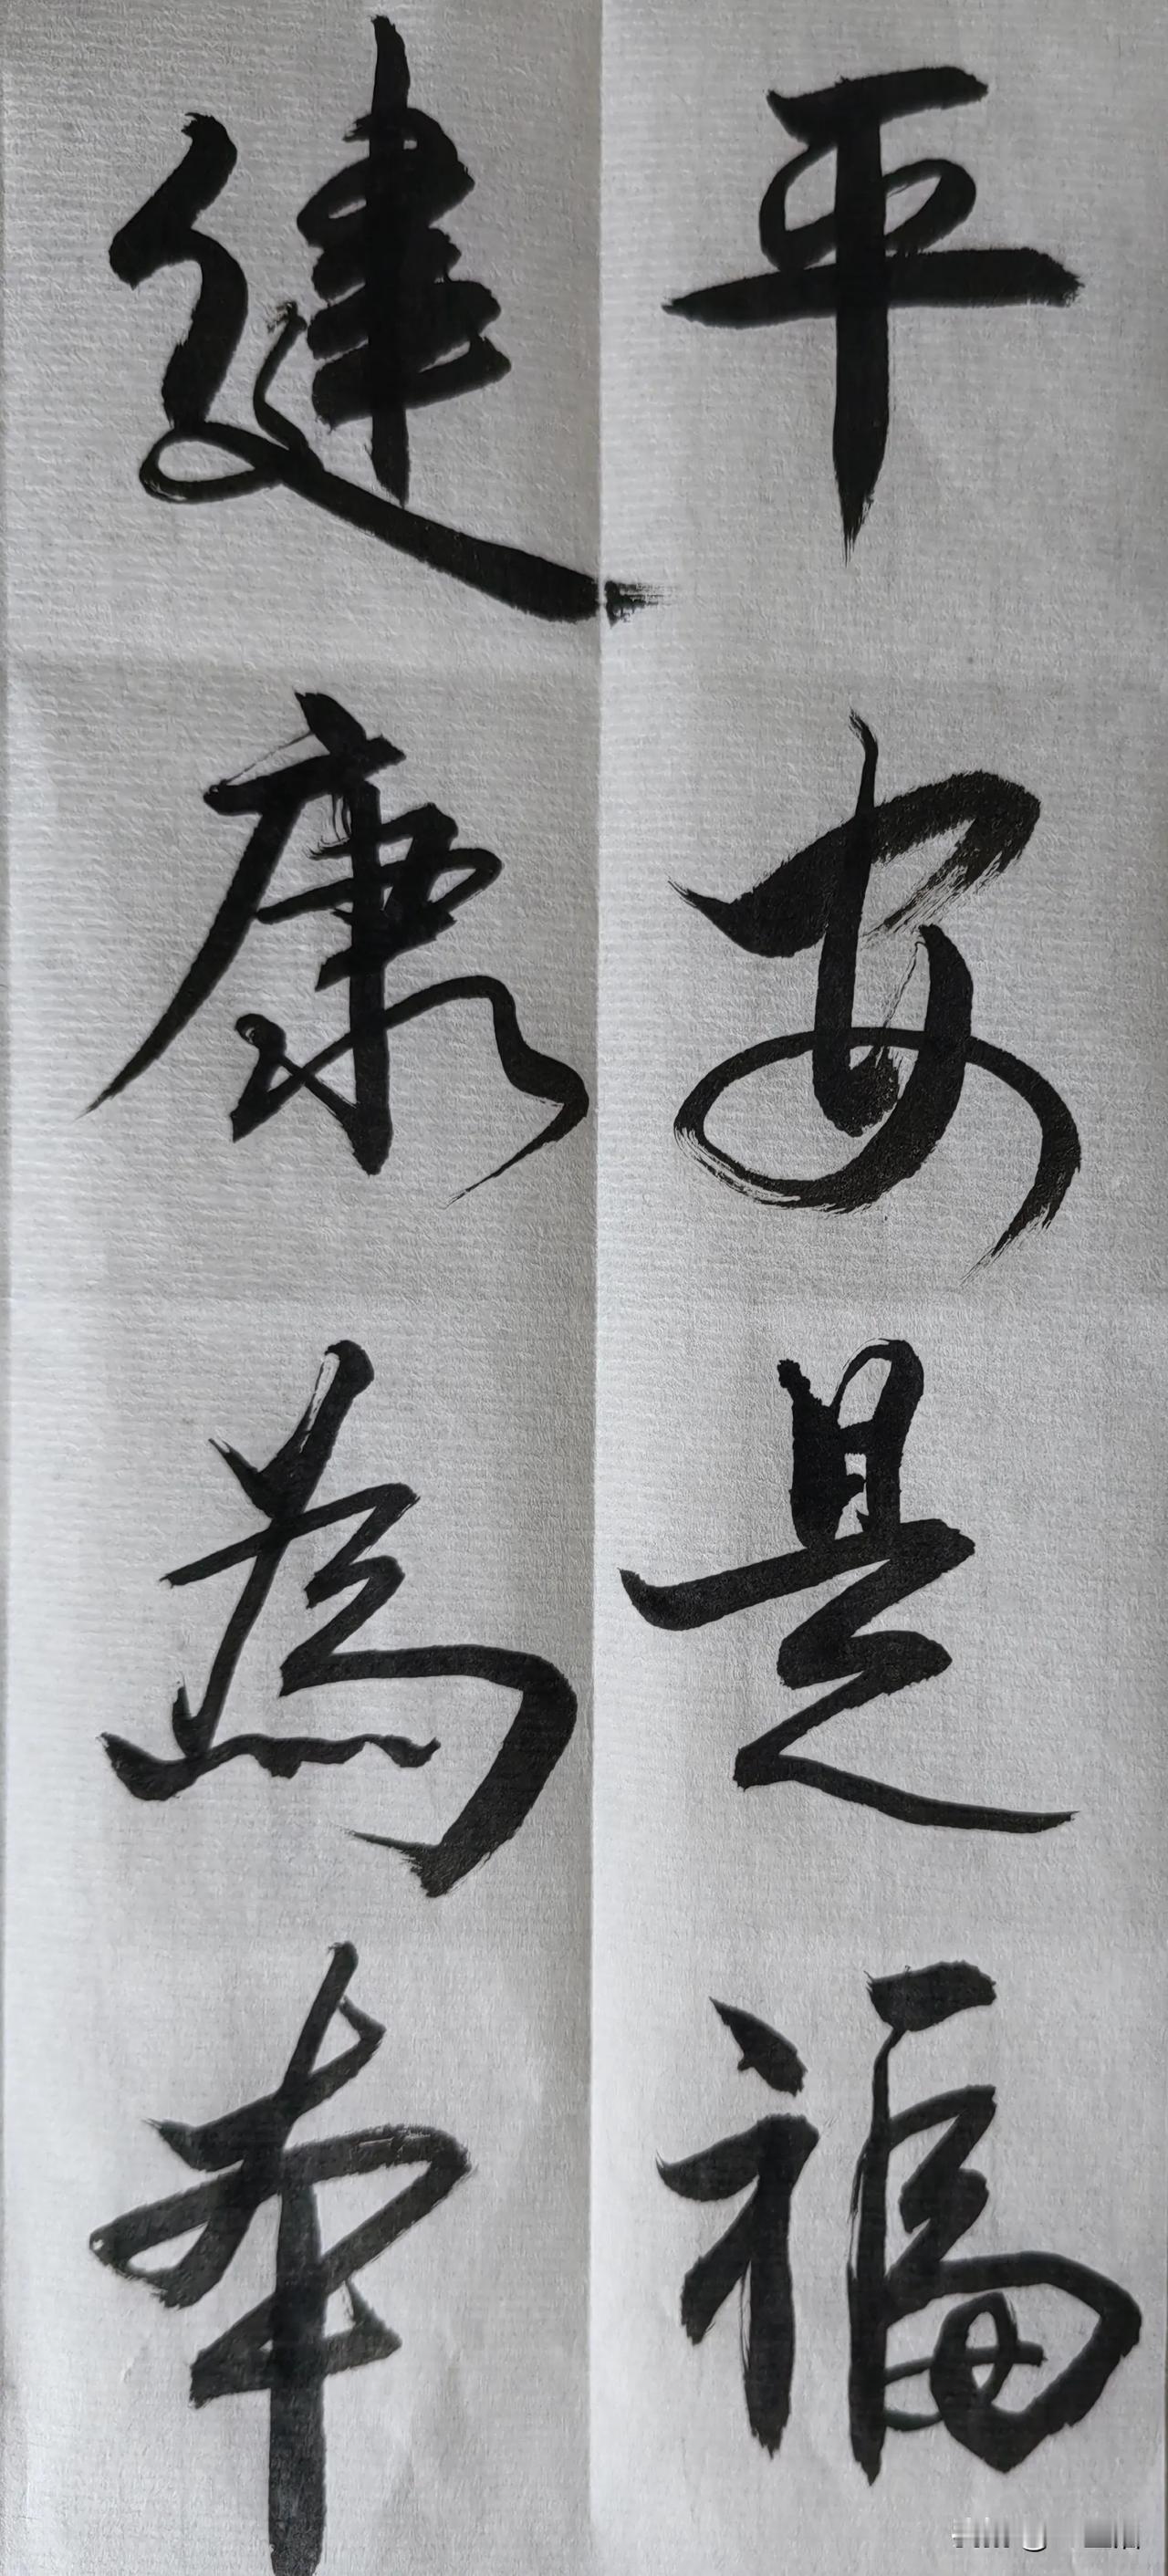 平安是福
建康為本